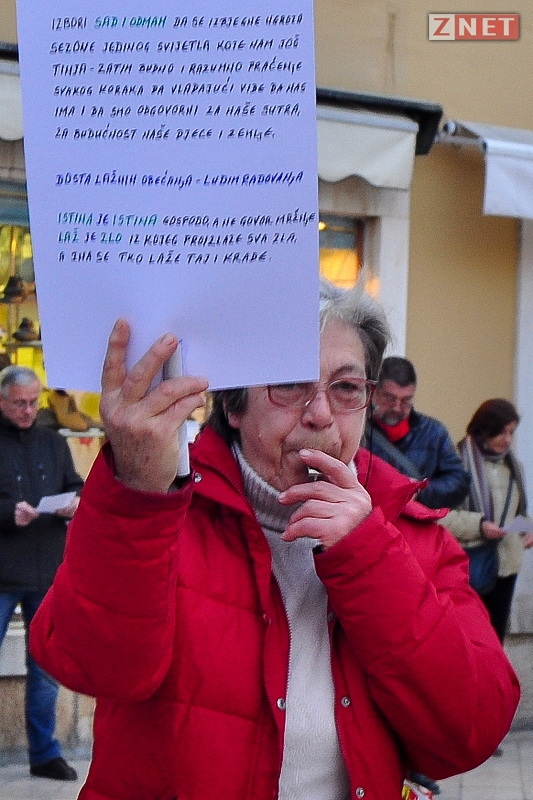 ZNET
IZBORI SAD I ODMAH DA SE IZBJEGNE UGROZA
SEZONE JEDINOG SVIJETLA KOJE NAM JOŠ
TINJA - ZATIM BUDNO I RAZUMNO PRAĆENJE
SVAKOG KORAKA DA VLADAJUĆI VIDE DA NAS
IMA I DA SMO ODGOVORNI ZA NAŠE SUTRA,
ZA BUDUĆNOST NAŠE DJECE I ZEMLJE.
DOSTA LAŽNIH OBEĆANJA - LUDIM RADOVANJA
ISTINA JE ISTINA GOSPODO, A NE GOVOR MRŽNJE
LAŽ JE ZLO IZ KOJEG PROIZLAZE SVA ZLA,
A ZNA SE TKO LAŽE TAJ I KRADE.